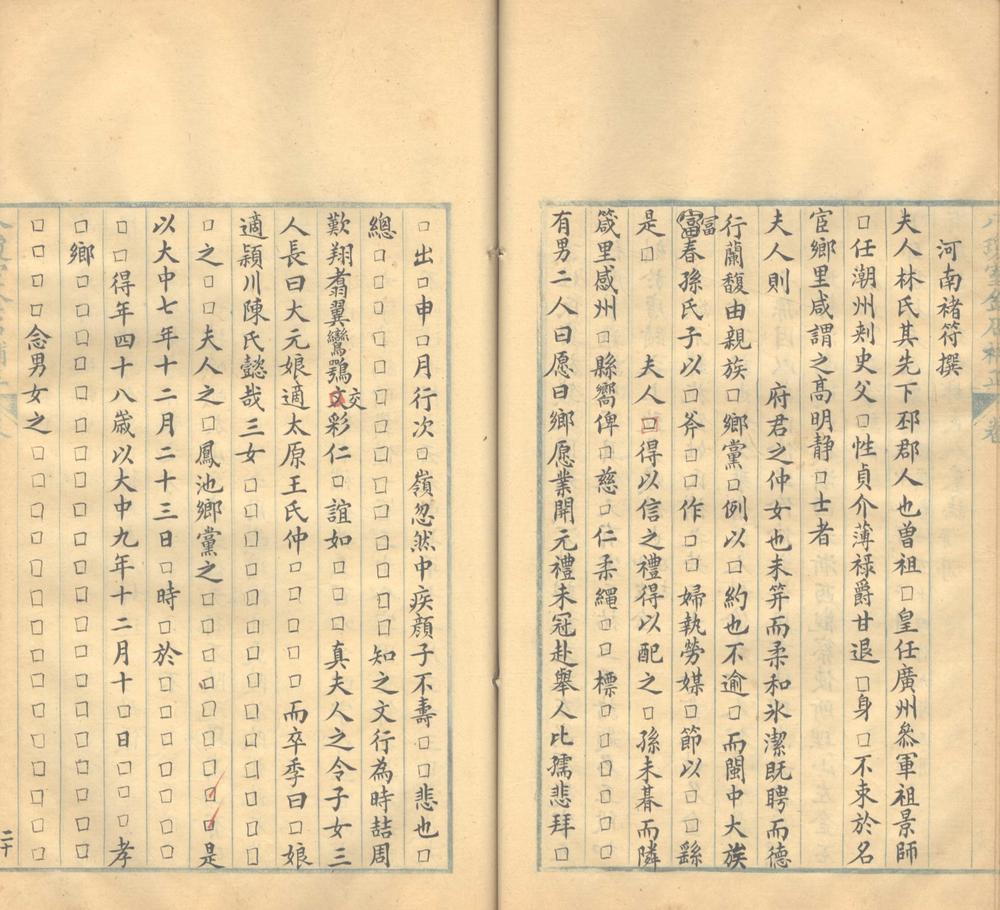 河南褚符撰
夫人林氏其先下邳郡人也曾祖□皇任廣州叅軍祖景師
□任潮州刾史父□性貞介薄祿爵甘退□身□不束於名
宦鄉里咸謂之高明靜□士者
夫人則　　府君之仲女也未笄而柔和氷潔旣聘而德
行蘭馥由親族□鄉黨□例以□約也不逾□而閩中大族
富春孫氏子以□斧□□作□□婦執勞媒□節以□□繇
富
是□　　夫人□得以信之禮得以配之□孫未暮而隣
箴里感州□縣嚮俾□慈□仁柔繩□□標□□□□□□
有男二人曰愿曰鄉愿業開元禮未冠赴舉人比孺悲拜□
□出□申□月行次□嶺忽然中疾顏子不壽□□悲也□
總□□□□□□□□□□□□□□知之文行為時喆周
歎翔翥翼鸞鶚文彩仁□誼如□□□真夫人之令子女三
交
人長曰大元娘適太原王氏仲曰□□□□而卒季曰□娘
適潁川陳氏懿哉三女□□□□□□□□□□□□□□
□之□□夫人之□鳳池鄉黨之□□□□□□□□□是
以大中七年十二月二十三日□時□於□□□□□□□
□□得年四十八歲以大中九年十二月十□日□□□孝
□鄉□□□□□□□□□□□□□□□□□□□□□
□□□□念男女之□□□□□□□□□□□□□□□
二十